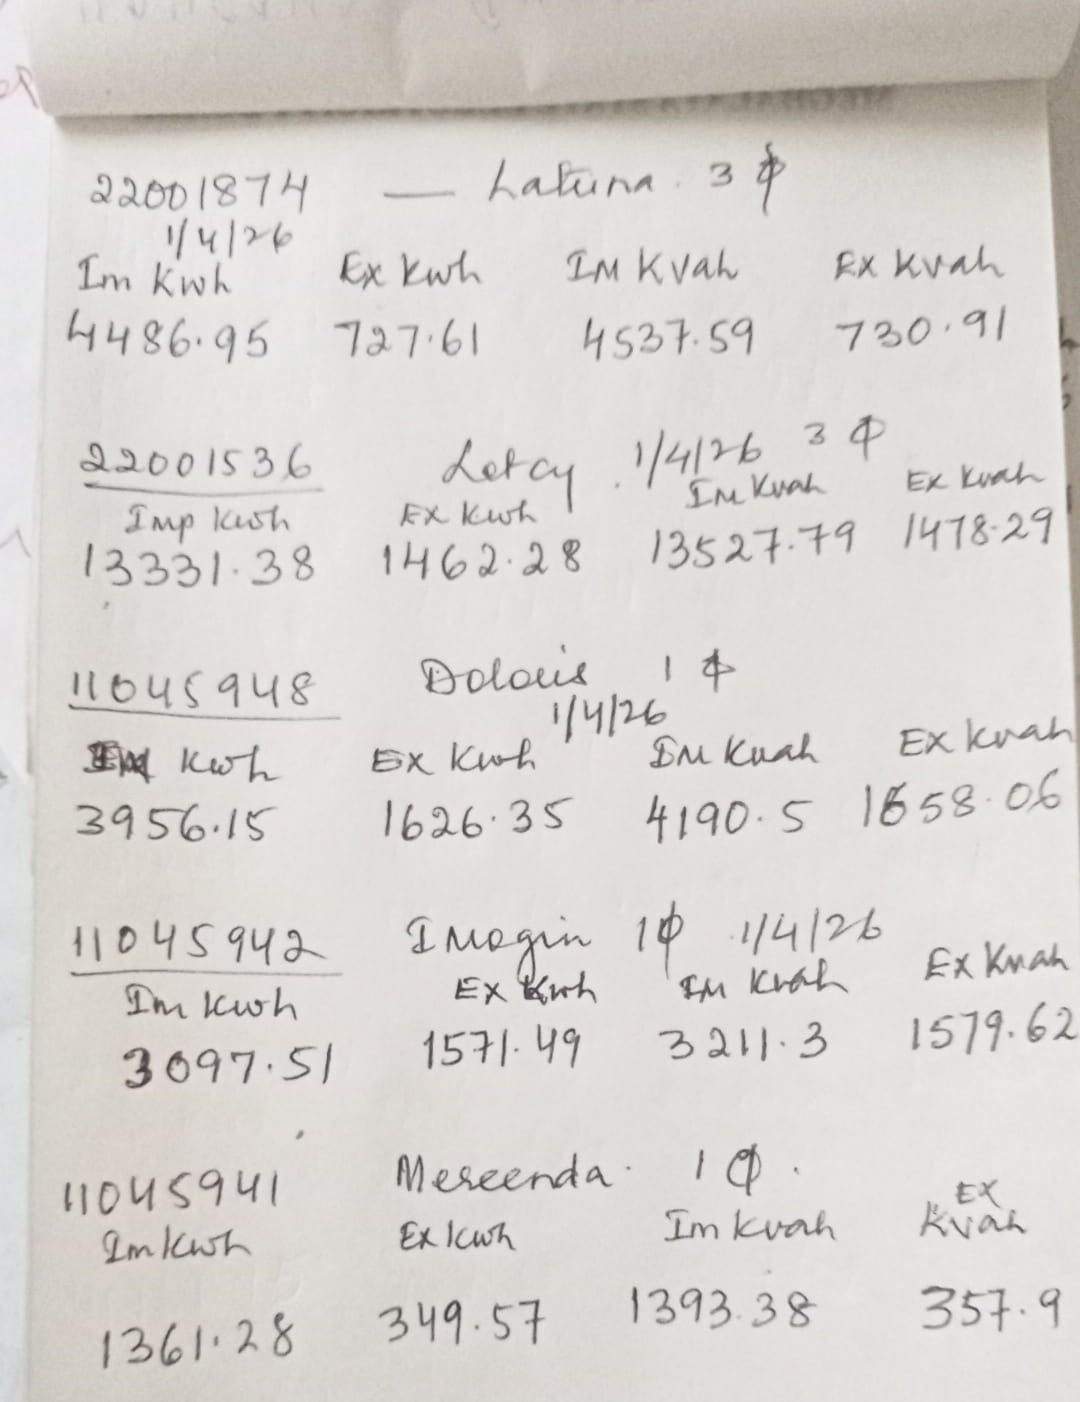 22001874 — Latuna. 3 ϕ
1/4/26
Im Kwh Ex Kwh IM KVah EX Kvah
4486.95 727.61 4537.59 730.91
22001536 Letcy. 1/4/26 3 ϕ
Imp Kwh EX Kwh Im Kvah Ex Kvah
13331.38 1462.28 13527.79 1478.29
11045948 Doloris 1 ϕ
1/4/26
IM Kwh Ex Kwh IM Kvah EX Kvah
3956.15 1626.35 4190.5 1658.06
11045942 Imogin 1ϕ 1/4/26
Im Kwh EX Kwh IM Kvah Ex Kvah
3097.51 1571.49 3211.3 1579.62
11045941 Mereenda. 1 ϕ.
Im Kwh Ex Kwh Im Kvah EX Kvah
1361.28 349.57 1393.38 357.9